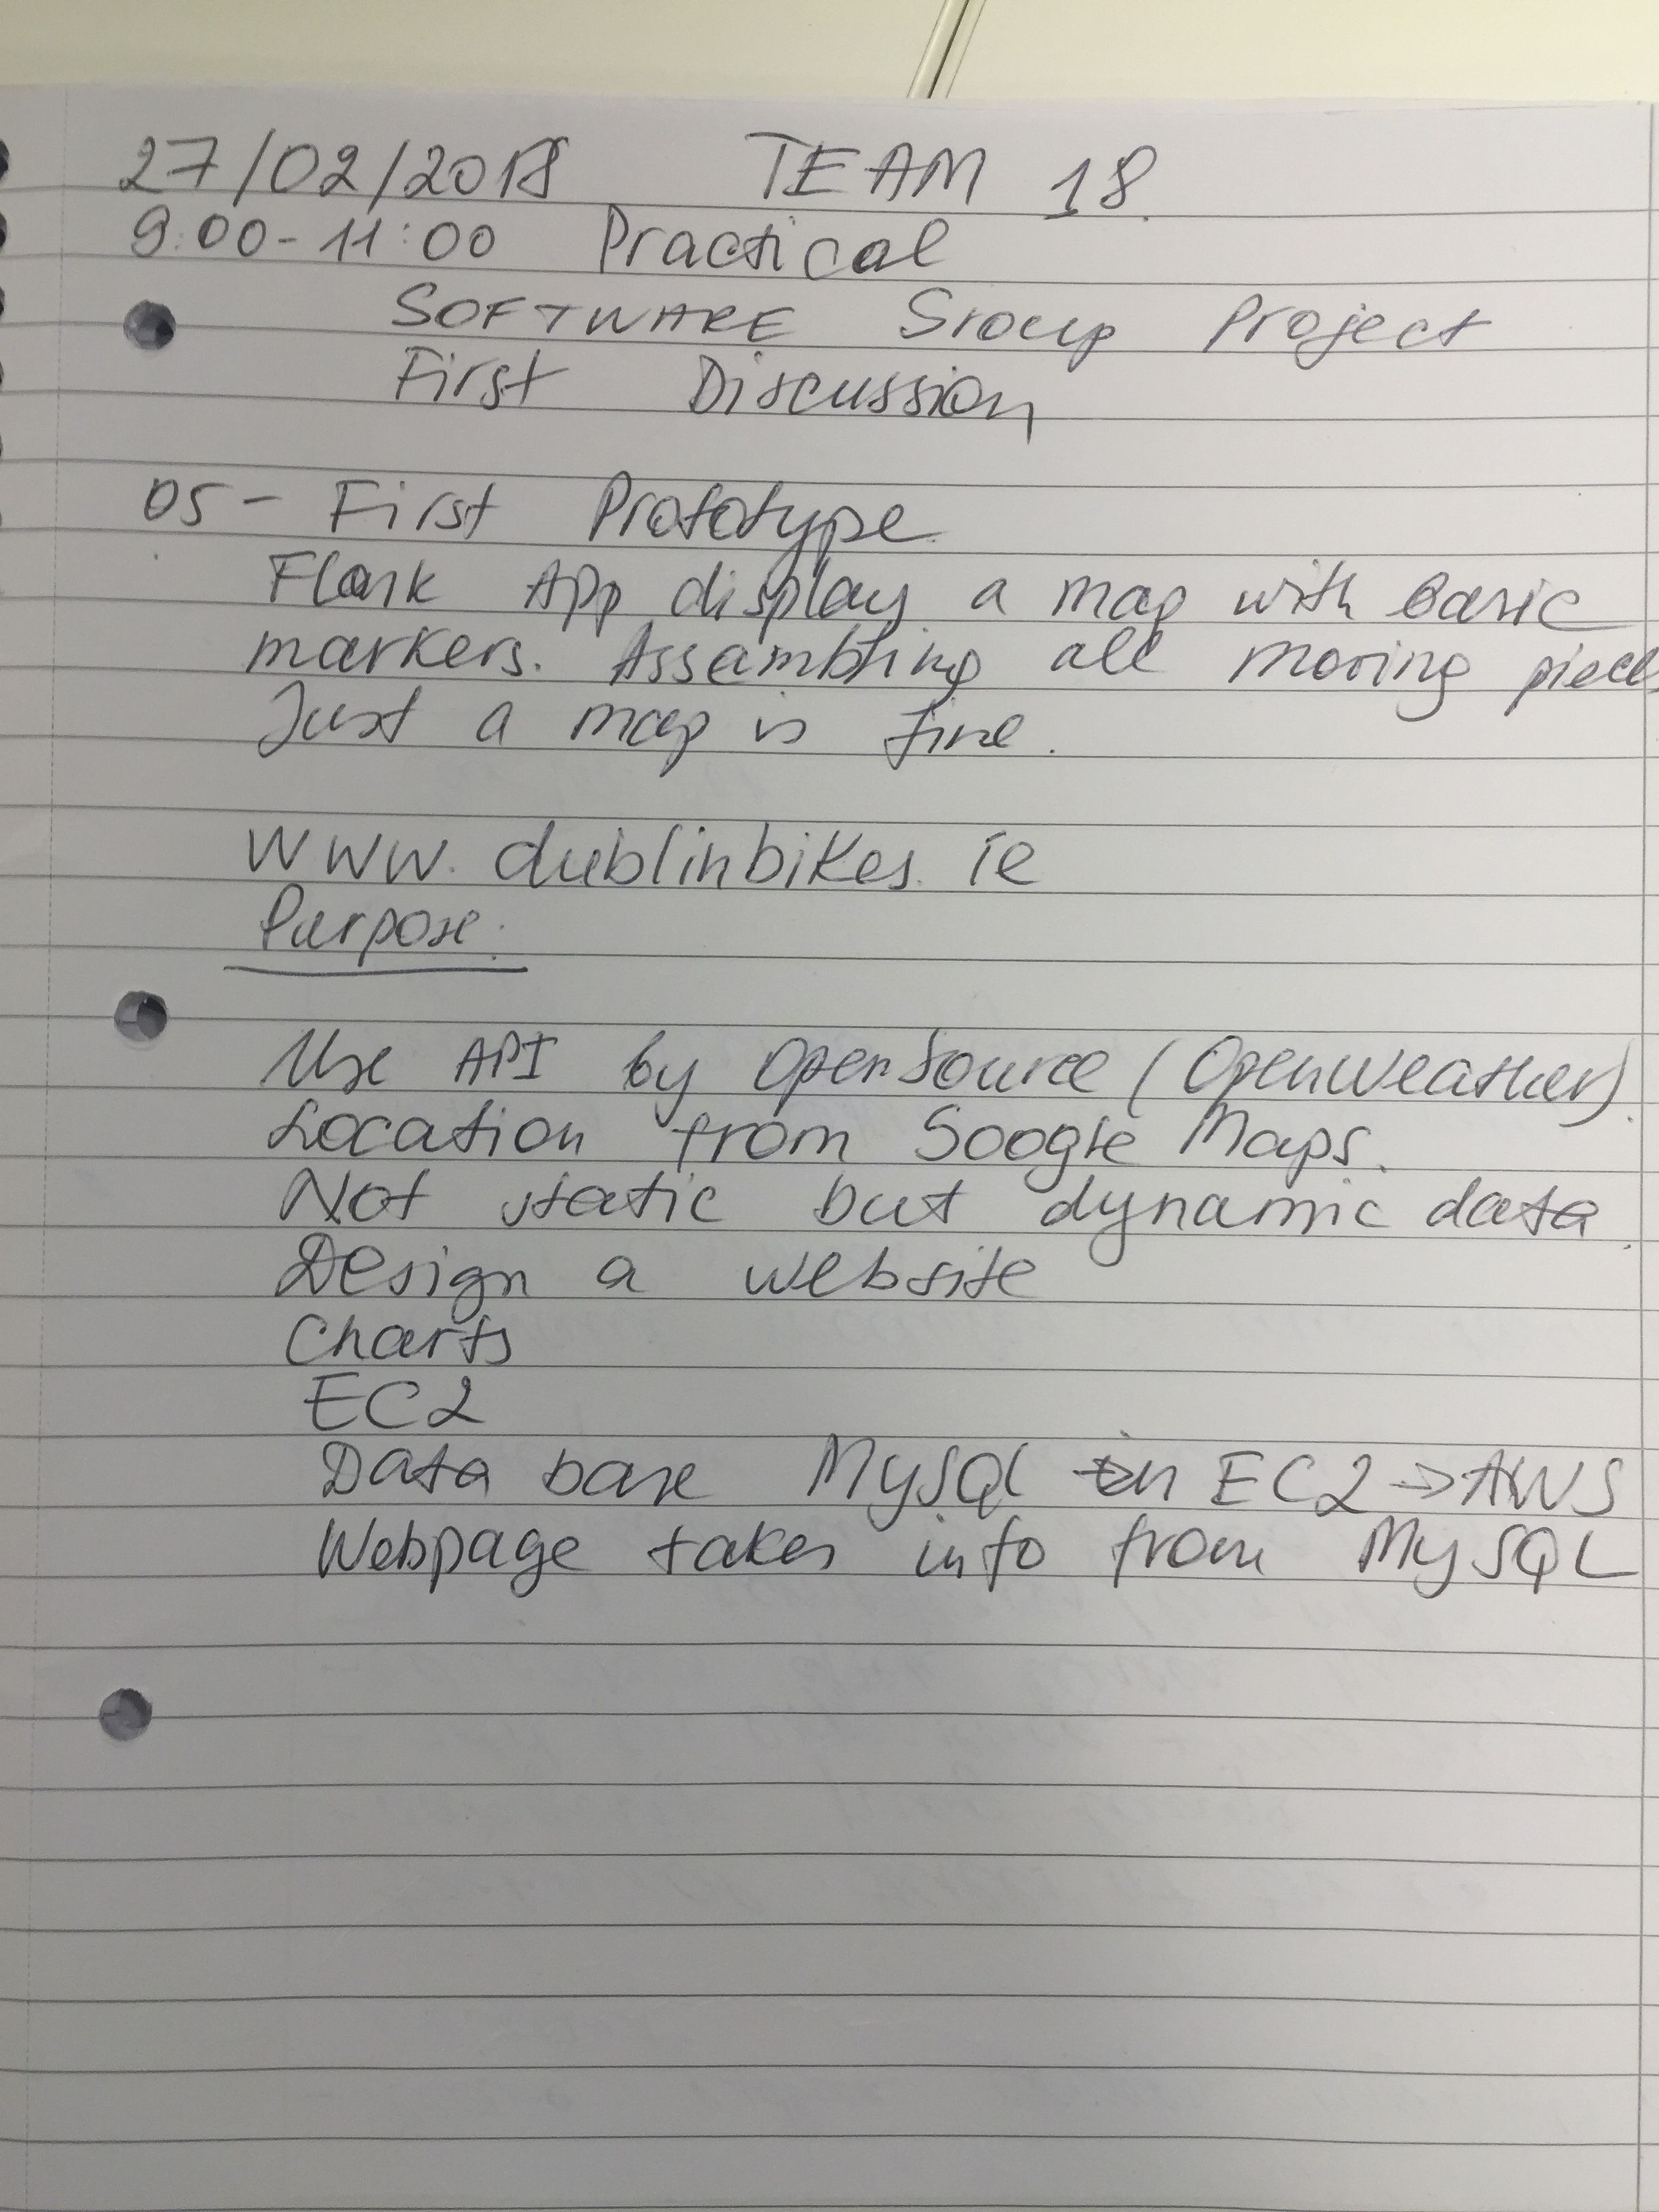 27/02/2018 TEAM 18.
9:00-11:00 Practical
SOFTWARE Group Project
First Discussion
05- First Prototype.
Flask App display a map with basic
markers. Assambling all moving pieces
Just a map is fine.
www.dublinbikes.ie
Purpose:
Use API by OpenSource (OpenWeather).
Location from Google Maps.
Not static but dynamic data.
Design a website
Charts
EC2
Data base MySQL in EC2 → AWS
Webpage takes info from MySQL